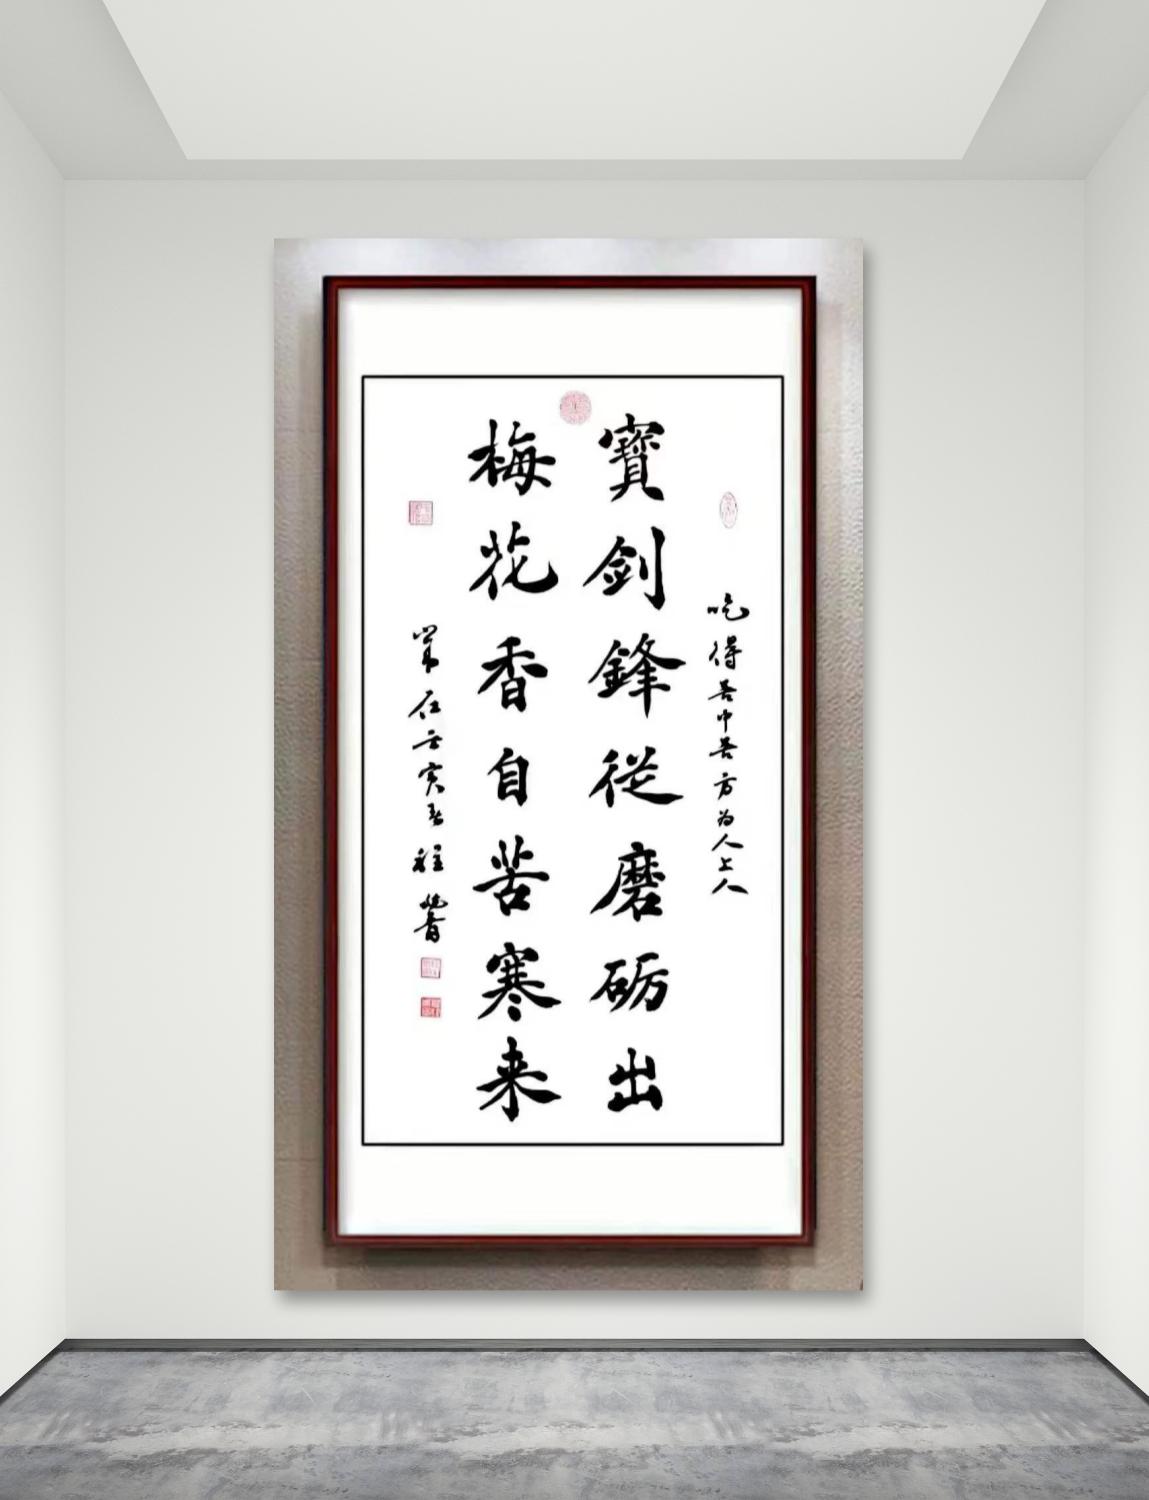 吃得苦中苦方为人上人
寶劍鋒從磨砺出
梅花香自苦寒来
岁在壬寅春